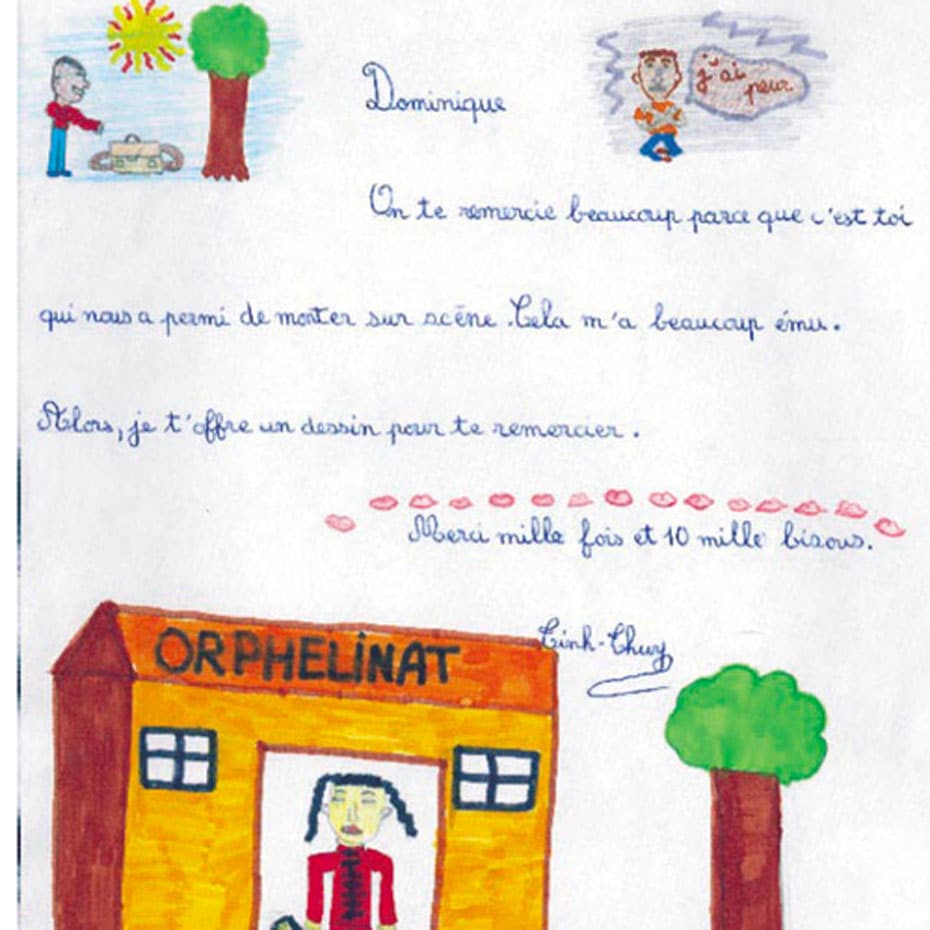 Dominique
j'ai
peur
On te remercie beaucoup parce que c'est toi
qui nous a permi de monter sur scène. Cela m'a beaucoup ému.
Alors, je t'offre un dessin pour te remercier.
Merci mille fois et 10 mille bisous.
Tinh-Thuy
ORPHELiNAT